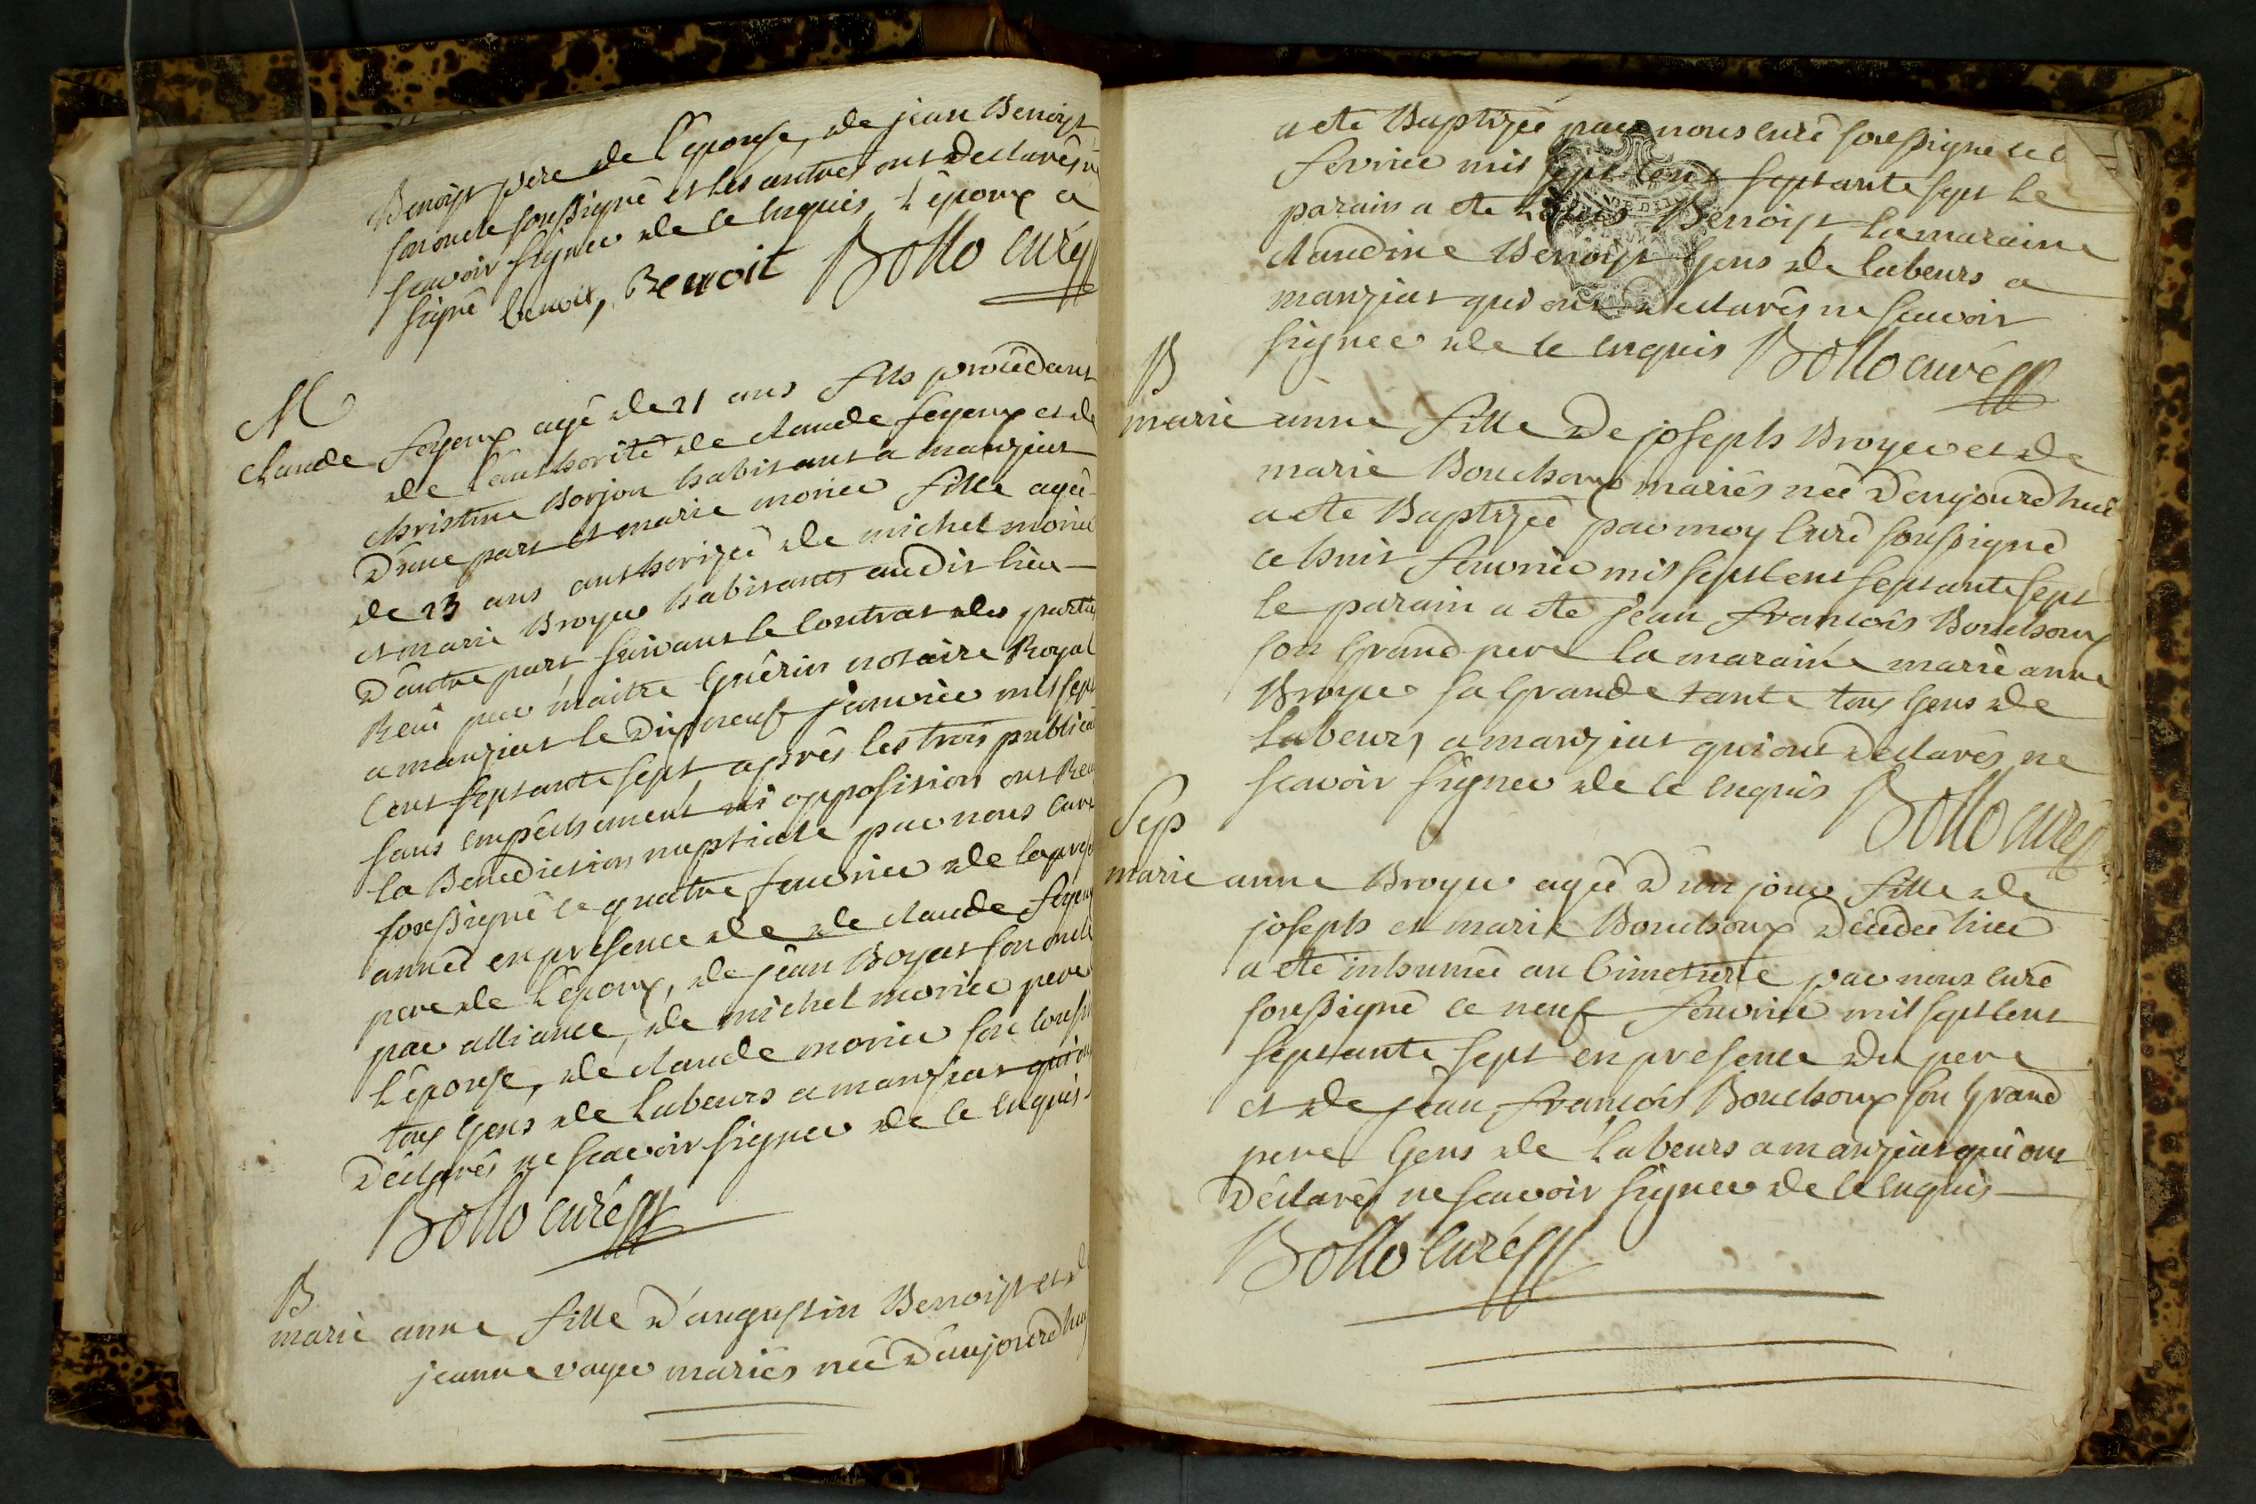 Benoist pere de l'epouse, de jean Benoist
son oncle soussigné et les autres ont declarés ne
scavoir signer de ce enquis l'époux a
signé benoit, Benoit Bollo curé
M
claude feyeux agé de 21 ans fils procedant
de l'authorité de claude feyeux et de
christine Borjon habitant a manziat
d'une part et marie morier fille agée
de 23 ans authorizée de michel morier
et marie Broyer habitants audit lieu
d'autre part suivant le contrat des parties
Reçu par maitre Guérin notaire Royal
a manziat le dixneuf janvier mil sept
cent septante sept après les trois publica
sans empêchement ni opposition ont Reçu
la Benediction nuptiale par nous curé
soussigné ce quatre fevrier de la prest
année en presence de de claude feyeux
pere de l'epoux, de jean Boyat son oncle
par alliance, de michel morier pere
l'épouse, de claude morier son cousin
tous gens de labeurs a manziat qui ont
déclarés ne scavoir signer de ce enquis
Bollo curé
B
marie anne fille d'augustin Benoist et de
jeanne vayer mariés née d'aujourdhuy
a été Baptizée par nous curé soussigné ce
fevrier mil sept cent septante sept le
parain a été Benoist la maraine
claudine Benoist gens de labeurs a
manziat qui ont declarés ne scavoir
signer de ce enquis Bollo curé
B
marie anne fille de joseph Broyer et de
marie Bouchoux mariés née d'aujourdhui
a été Baptizée par moy curé soussigné
ce huit feuvrier mil sept cent septante sept
le parain a été jean françois Bouchoux
son Grand pere la maraine marie anne
Broyer sa Grande tante tous gens de
labeurs a manziat qui ont declarés ne
scavoir signer de ce enquis Bollo curé
Sep
marie anne Broyer agée d'un jour fille de
joseph et marie Bouchoux décédée hier
a été inhumée au Cimetière par nous curé
soussigné ce neuf feuvrier mil sept cent
septante sept en presence du pere
et de jean françois Bouchoux son Grand
pere Gens de labeurs a manziat qui ont
déclarés ne scavoir signer de ce enquis
Bollo curé